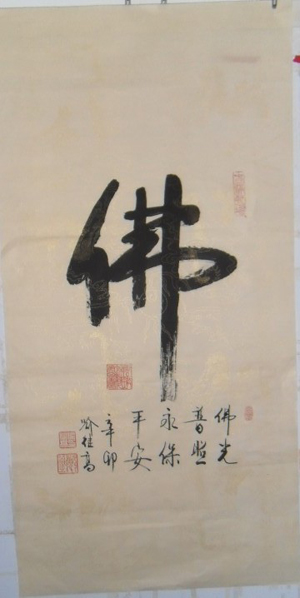 佛
佛光
普照
永保
平安
辛卯